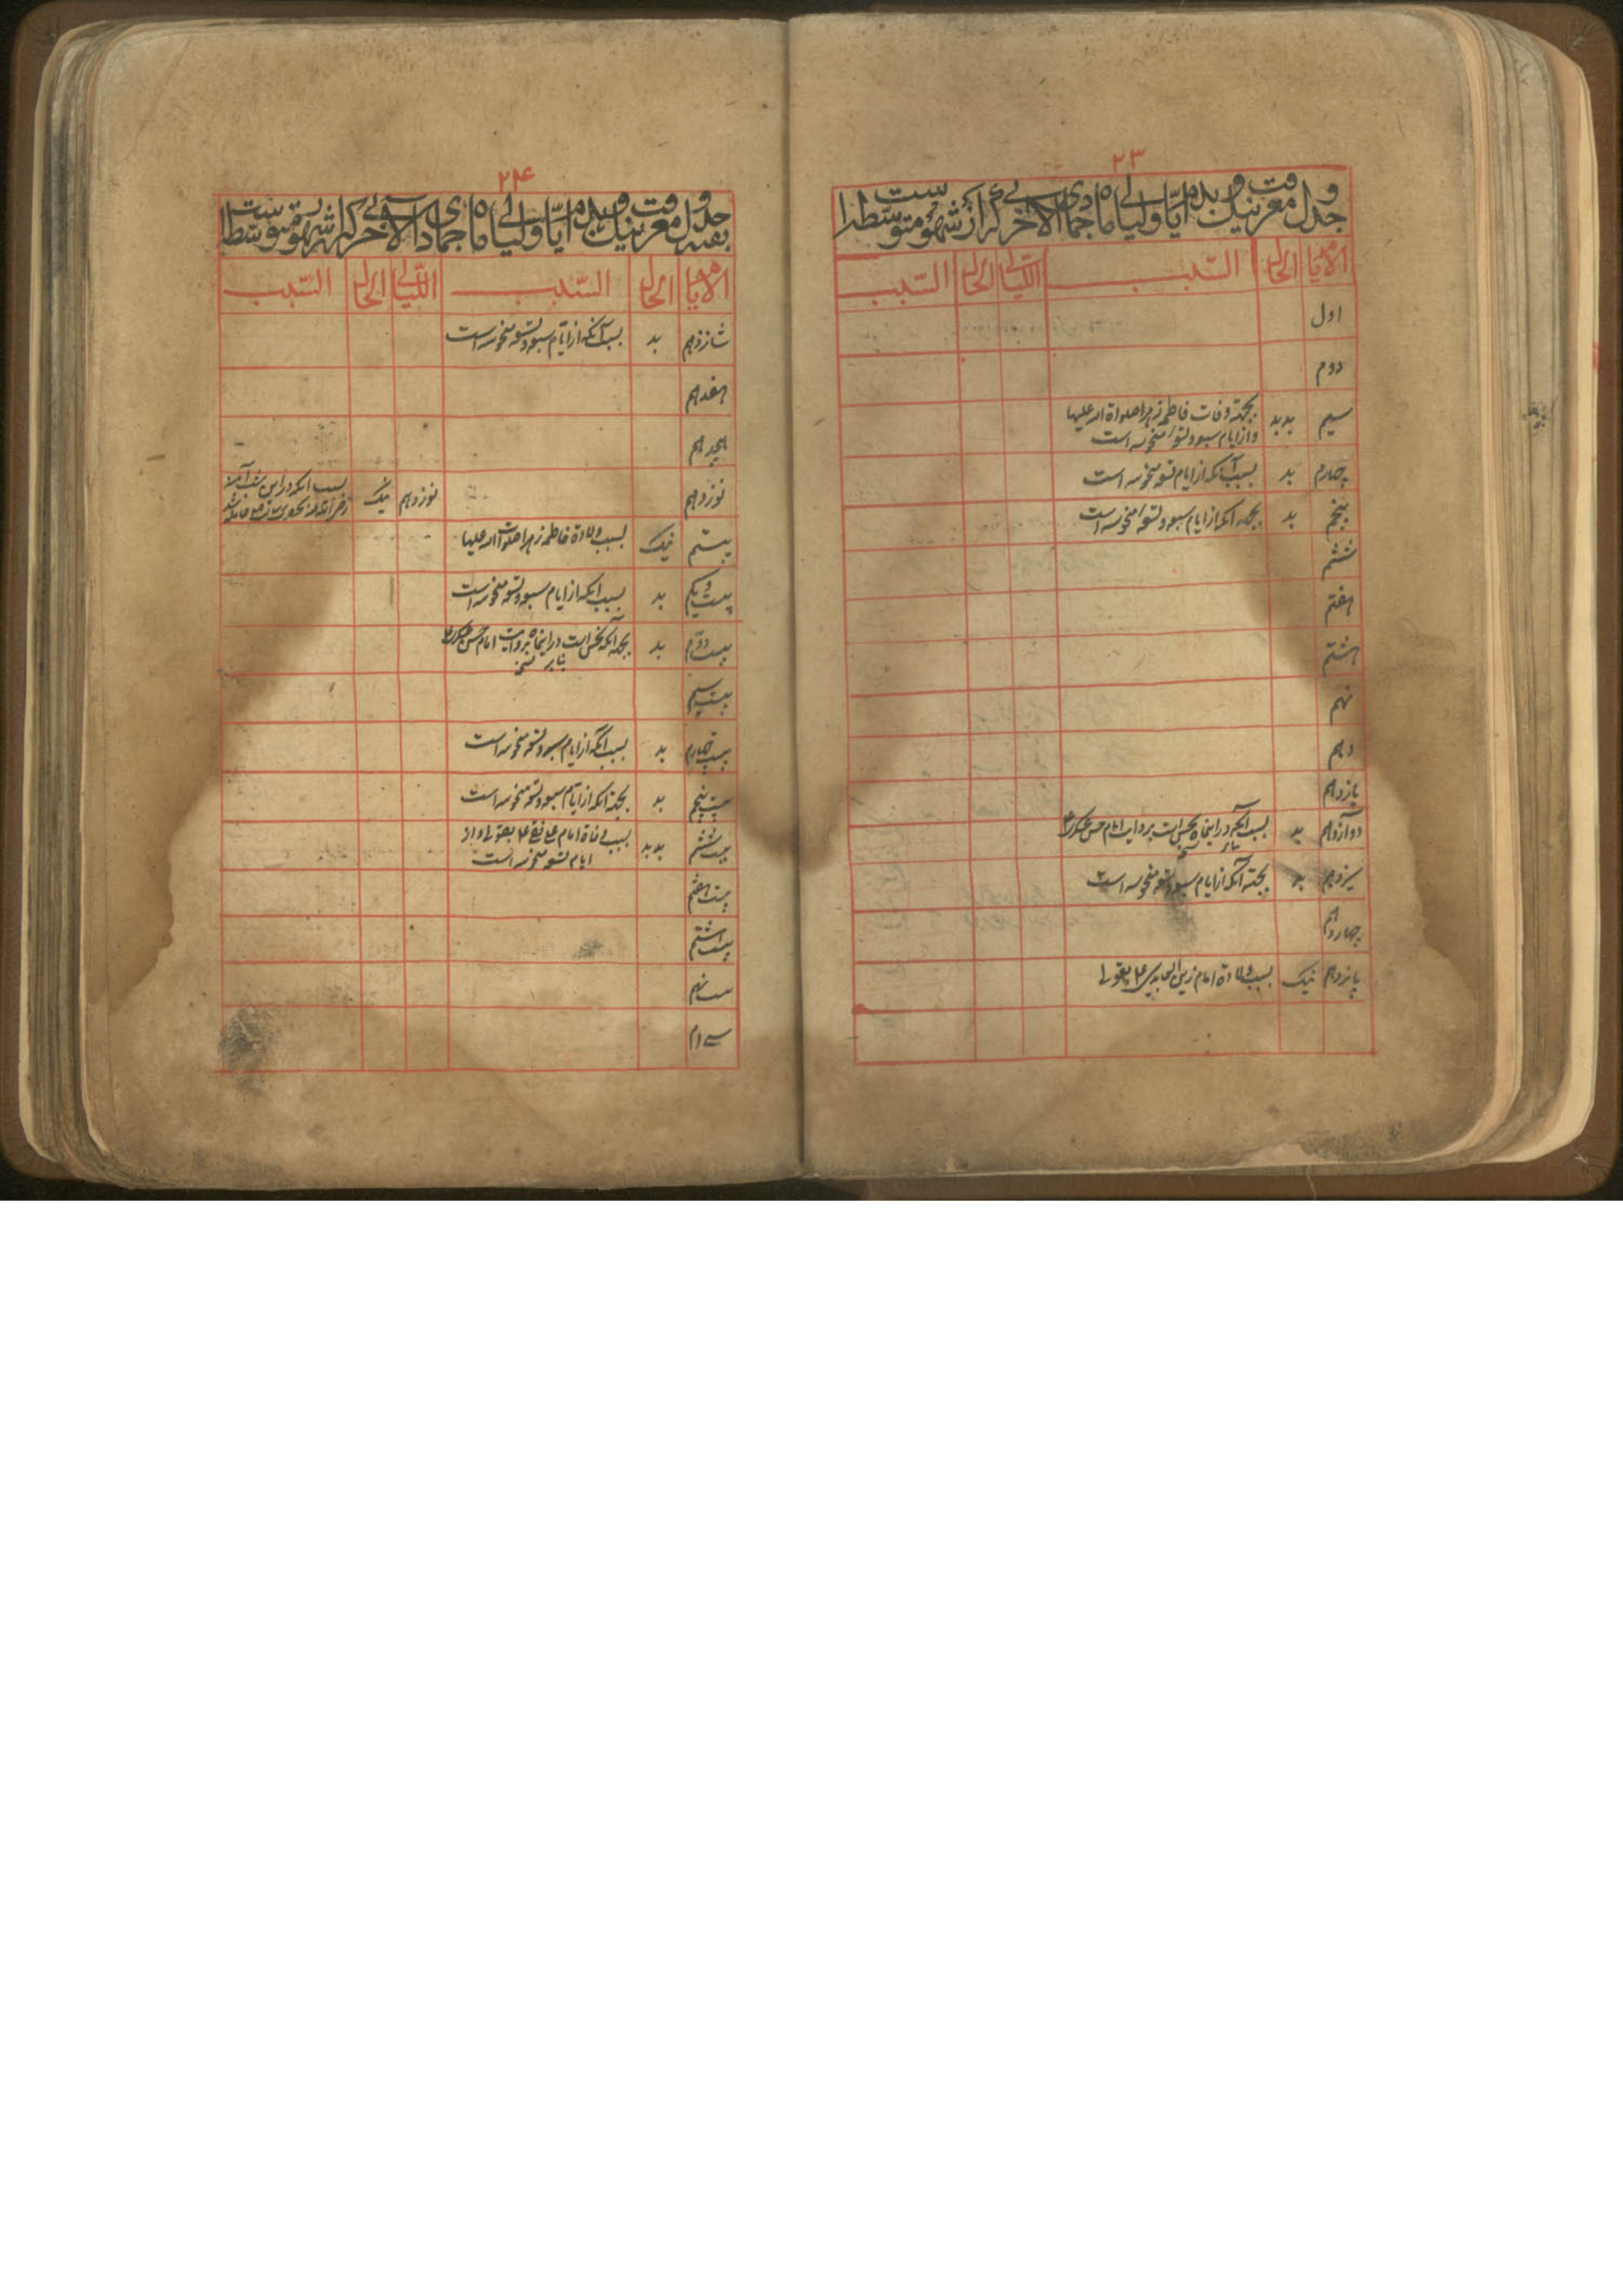 ۲۳
جدول معرفت نیک و بد ایام و لیالی ماه جمادی الاخری که از شهور متوسطه است
الایام الحال السبب اللیالی الحال السبب
اول
دوم
سیم بدبد بجهة وفات فاطمه زهرا صلواة الله علیها
و از ایام سبعه و تسعه منحوسه است
چهارم بد بسبب آنکه از ایام تسعه منحوسه است
پنجم بد بجهة آنکه از ایام سبعه و تسعه منحوسه است
ششم
هفتم
هشتم
نهم
دهم
یازدهم
دوازدهم بد بسبب آنکه در اینماه نحس است بروایت امام حسن عسکری ع
بنابر
سیزدهم بد بجهة آنکه از ایام سبعه و تسعه منحوسه است
چهاردهم
پانزدهم نیک بسبب ولادة امام زین العابدین ع بقولی
۲۴
بقیه جدول معرفت نیک و بد ایام و لیالی ماه جمادی الاخری که از شهور متوسطه است
الایام الحال السبب اللیالی الحال السبب
شانزدهم بد بسبب آنکه از ایام سبعه و تسعه منحوسه است
هفدهم
هیجدهم
نوزدهم نوزدهم نیک بسبب آنکه در این شب آمنه
بیستم نیک بسبب ولادة فاطمه زهرا صلواة الله علیها
بیست و یکم بد بسبب آنکه از ایام سبعه و تسعه منحوسه است
بیست دوم بد بجهة آنکه نحس است در اینماه بروایت امام حسن عسکری ع
بنابر
بیست سیم
بیست چهارم بد بسبب آنکه از ایام سبعه و تسعه منحوسه است
بیست پنجم بد بجهة آنکه از ایام سبعه و تسعه منحوسه است
بیست ششم بدبد بسبب وفاة امام علی نقی ع بقولی و از
ایام تسعه منحوسه است
بیست هفتم
بیست هشتم
بیست نهم
سی ام